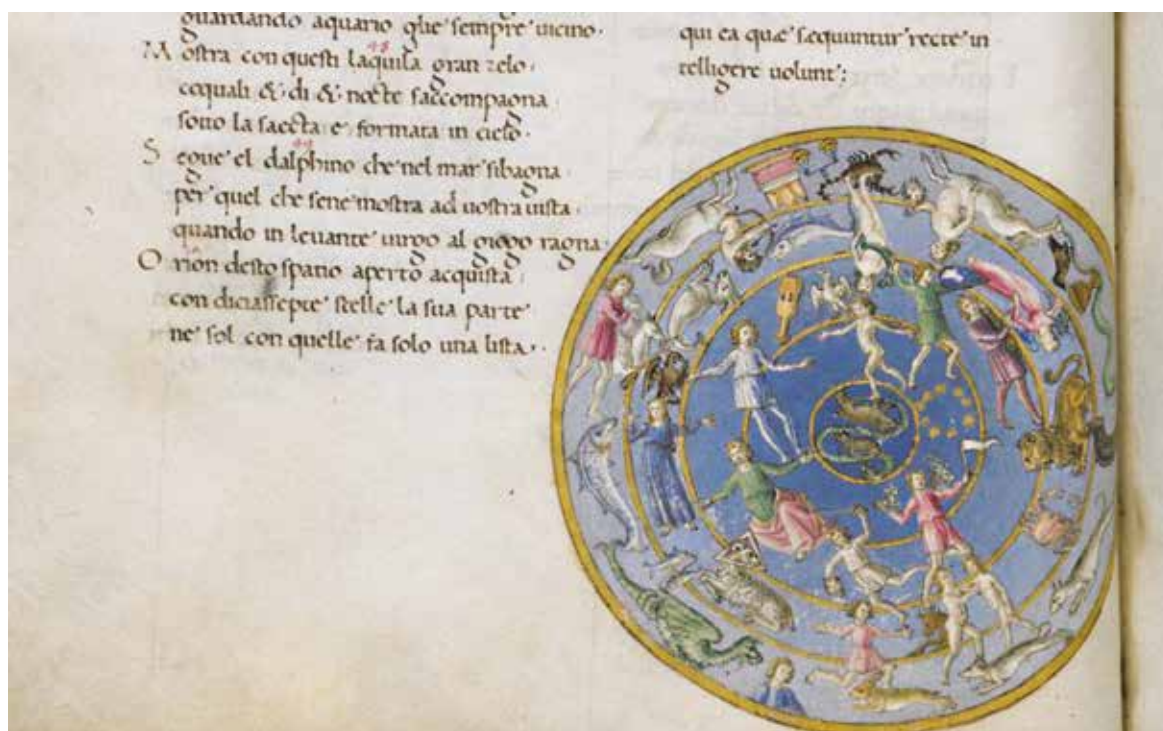 guardando aquario che sempre uicino.
Mostra con questi laquila gran zelo.
coquali & di & nocte saccompagna
sotto la saecta e formata in cielo.
Segue el dalphino che nel mar sibagna
per quel che sene mostra ad uostra uista.
quando in leuante uirgo al giogo ragna.
Orion desto spatio aperto acquista
con diciassepte stelle la sua parte
ne sol con quelle fa solo una lista.
qui ea quæ sequuntur recte in
telligere uolunt: